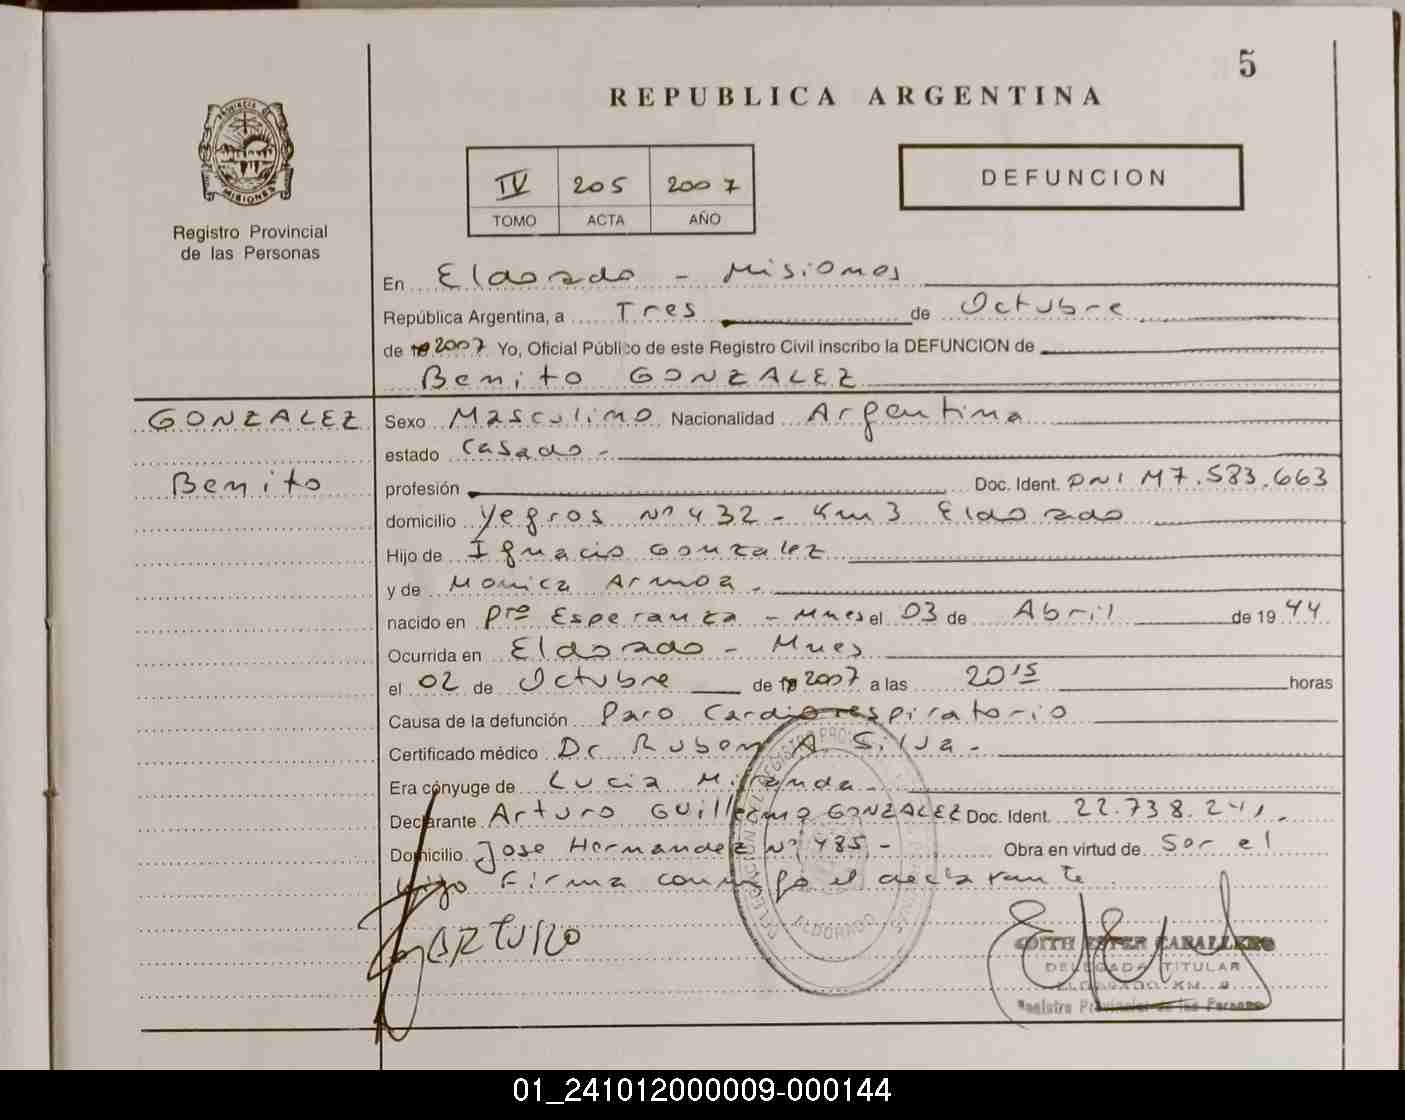 5
REPUBLICA ARGENTINA
PROVINCIA DE MISIONES
Registro Provincial
de las Personas
IV 205 2007
TOMO ACTA AÑO
DEFUNCION
En Eldorado - Misiones
República Argentina, a Tres de Octubre
de 2007 Yo, Oficial Público de este Registro Civil inscribo la DEFUNCION de
Benito GONZALEZ
GONZALEZ
Benito
Sexo Masculino Nacionalidad Argentina
estado Casado -
profesión Doc. Ident. DNI M7.583.663
domicilio Yegros Nº 432 - Km 3 Eldorado
Hijo de Ignacio Gonzalez
y de Monica Armoa -
nacido en Pto Esperanza - Mnes el 03 de Abril de 1944
Ocurrida en Eldorado - Mnes
el 02 de Octubre de 2007 a las 20 15 horas
Causa de la defunción Paro Cardiorespiratorio
Certificado médico Dr Ruben A. Silva -
Era cónyuge de Lucia Miranda -
Declarante Arturo Guillermo GONZALEZ Doc. Ident. 22.738.241
Domicilio Jose Hernandez Nº 485 - Obra en virtud de Ser el
Hijo Firma conmigo el declarante
ARTURO
ELDORADO
EDITH ESTER CABALLERO
DELEGADA TITULAR
ELDORADO KM. 9
Registro Provincial de las Personas
01_241012000009-000144